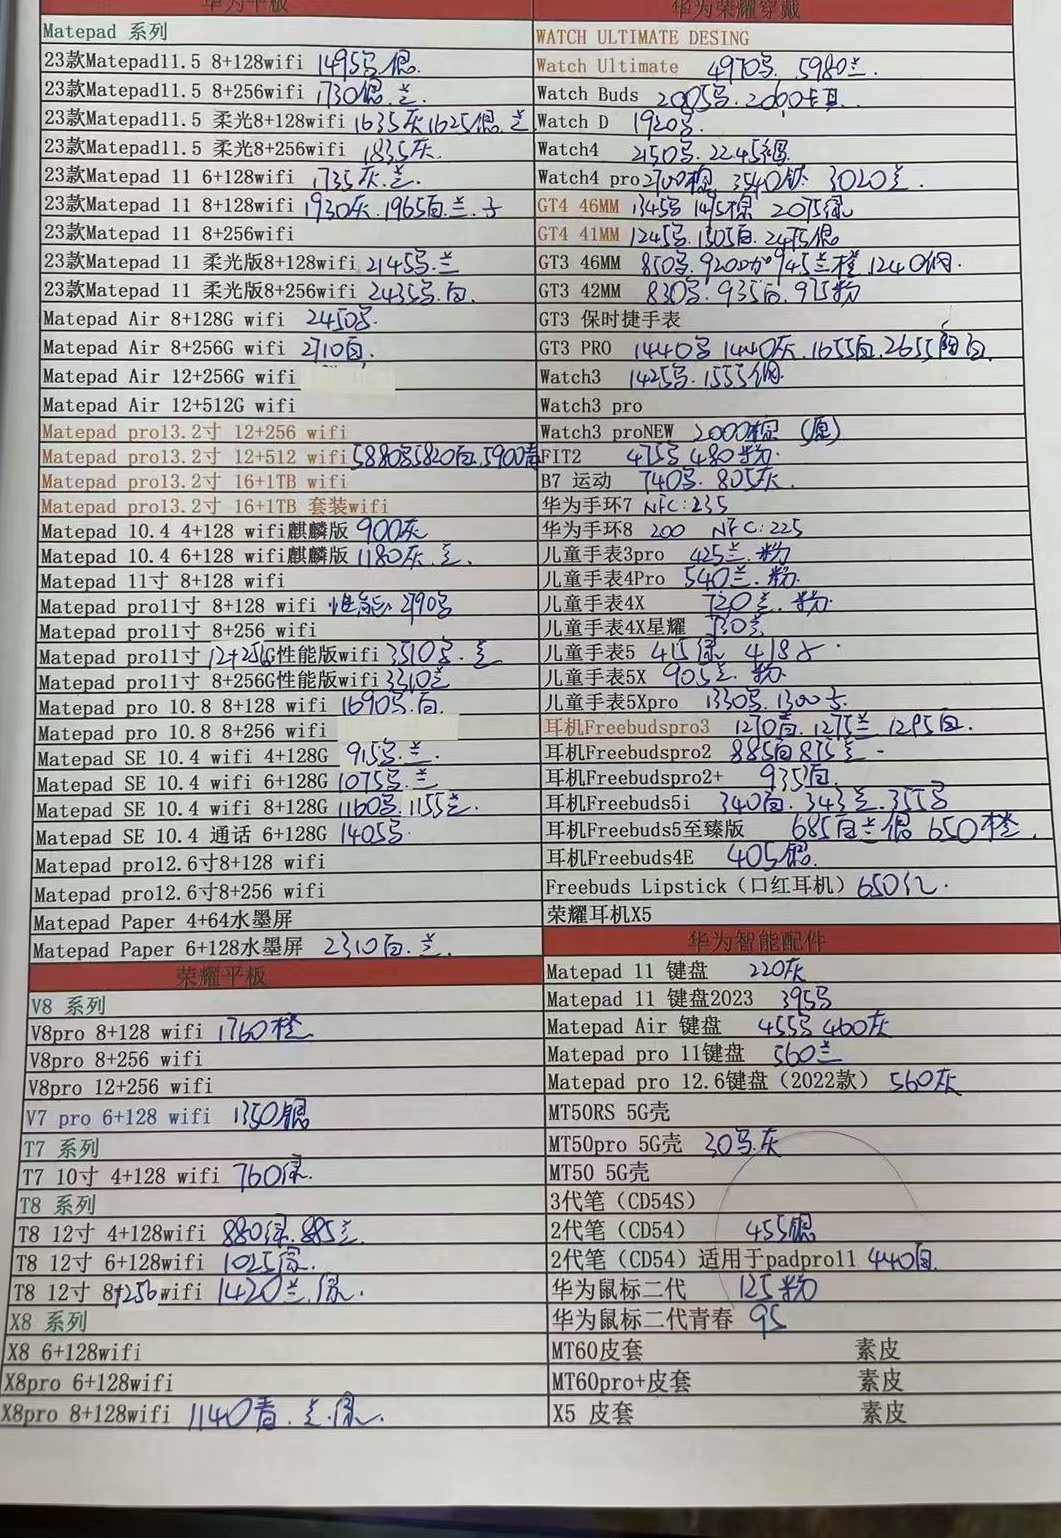 华为平板
Matepad 系列
23款Matepad11.5 8+128wifi 1495号银.
23款Matepad11.5 8+256wifi 1730银.兰.
23款Matepad11.5 柔光8+128wifi 1635灰1625银.兰
23款Matepad11.5 柔光8+256wifi 1835灰.
23款Matepad 11 6+128wifi 1735灰.兰.
23款Matepad 11 8+128wifi 1930灰.1965白.兰.子
23款Matepad 11 8+256wifi
23款Matepad 11 柔光版8+128wifi 2145号.兰
23款Matepad 11 柔光版8+256wifi 2435号.白.
Matepad Air 8+128G wifi 2450号.
Matepad Air 8+256G wifi 2710白.
Matepad Air 12+256G wifi
Matepad Air 12+512G wifi
Matepad pro13.2寸 12+256 wifi
Matepad pro13.2寸 12+512 wifi 5880号5820白.5900青
Matepad pro13.2寸 16+1TB wifi
Matepad pro13.2寸 16+1TB 套装wifi
Matepad 10.4 4+128 wifi麒麟版 900灰
Matepad 10.4 6+128 wifi麒麟版 1180灰.兰.
Matepad 11寸 8+128 wifi
Matepad pro11寸 8+128 wifi 性能 2790号
Matepad pro11寸 8+256 wifi
Matepad pro11寸 12+256G性能版wifi 3510号.兰
Matepad pro11寸 8+256G性能版wifi 3310兰
Matepad pro 10.8 8+128 wifi 1690号.白.
Matepad pro 10.8 8+256 wifi
Matepad SE 10.4 wifi 4+128G 915号.兰.
Matepad SE 10.4 wifi 6+128G 1075号.兰
Matepad SE 10.4 wifi 8+128G 1160号.1155兰.
Matepad SE 10.4 通话 6+128G 1405号.
Matepad pro12.6寸8+128 wifi
Matepad pro12.6寸8+256 wifi
Matepad Paper 4+64水墨屏
Matepad Paper 6+128水墨屏 2310白.兰.
荣耀平板
V8 系列
V8pro 8+128 wifi 1760橙
V8pro 8+256 wifi
V8pro 12+256 wifi
V7 pro 6+128 wifi 1350银
T7 系列
T7 10寸 4+128 wifi 760绿.
T8 系列
T8 12寸 4+128wifi 880绿.885兰.
T8 12寸 6+128wifi
T8 12寸 8+256wifi 1420兰.绿.
X8 系列
X8 6+128wifi
X8pro 6+128wifi
X8pro 8+128wifi 1140青.兰.绿.
华为荣耀穿戴
WATCH ULTIMATE DESING
Watch Ultimate 4970号. 5980兰.
Watch Buds 2005号.2060卡其.
Watch D 1920号.
Watch4 2150号.2245褐.
Watch4 pro 2700棕. 3540钛. 3020兰.
GT4 46MM 1345号 1415棕 2075绿
GT4 41MM 1245号.1505白.2475银
GT3 46MM 850号.920 945兰橙 1240钢.
GT3 42MM 830号.935白.975粉
GT3 保时捷手表
GT3 PRO 1440号 1440灰.1655白.2655陶白
Watch3 1425号.1555钢.
Watch3 pro
Watch3 proNEW 2000棕 (原)
FIT2 475号 480粉.
B7 运动 740号. 805灰.
华为手环7 NFC:235
华为手环8 200 NFC:225
儿童手表3pro 425兰.粉
儿童手表4Pro 540兰.粉.
儿童手表4X 720兰.粉.
儿童手表4X星耀 730兰
儿童手表5 415绿 418
儿童手表5X 905兰. 粉.
儿童手表5Xpro 1330号.1300
耳机Freebudspro3 1270青.1275兰 1295白.
耳机Freebudspro2 885白875兰
耳机Freebudspro2+ 935白.
耳机Freebuds5i 340白.343兰.355号
耳机Freebuds5至臻版 685白兰银 650橙.
耳机Freebuds4E 405银.
Freebuds Lipstick（口红耳机）650红.
荣耀耳机X5
华为智能配件
Matepad 11 键盘 220灰
Matepad 11 键盘2023 395号
Matepad Air 键盘 455号 460灰
Matepad pro 11键盘 560兰
Matepad pro 12.6键盘（2022款）560灰
MT50RS 5G壳
MT50pro 5G壳 30号.灰
MT50 5G壳
3代笔（CD54S）
2代笔（CD54） 455银
2代笔（CD54）适用于padpro11 440白.
华为鼠标二代 125粉
华为鼠标二代青春 95
MT60皮套 素皮
MT60pro+皮套 素皮
X5 皮套 素皮